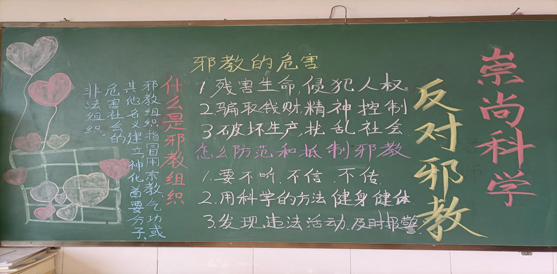 崇尚科学
反对邪教
邪教的危害
1.残害生命,侵犯人权。
2.骗取钱财精神控制
3.破坏生产,扰乱社会
怎么防范和抵制邪教
1.要不听、不信、不传。
2.用科学的方法健身健体
3.发现违法活动,及时报警。
什么是邪教组织
邪教组织指冒用宗教气功或
其他名义建立神化首要分子、
危害社会的
非法组织。